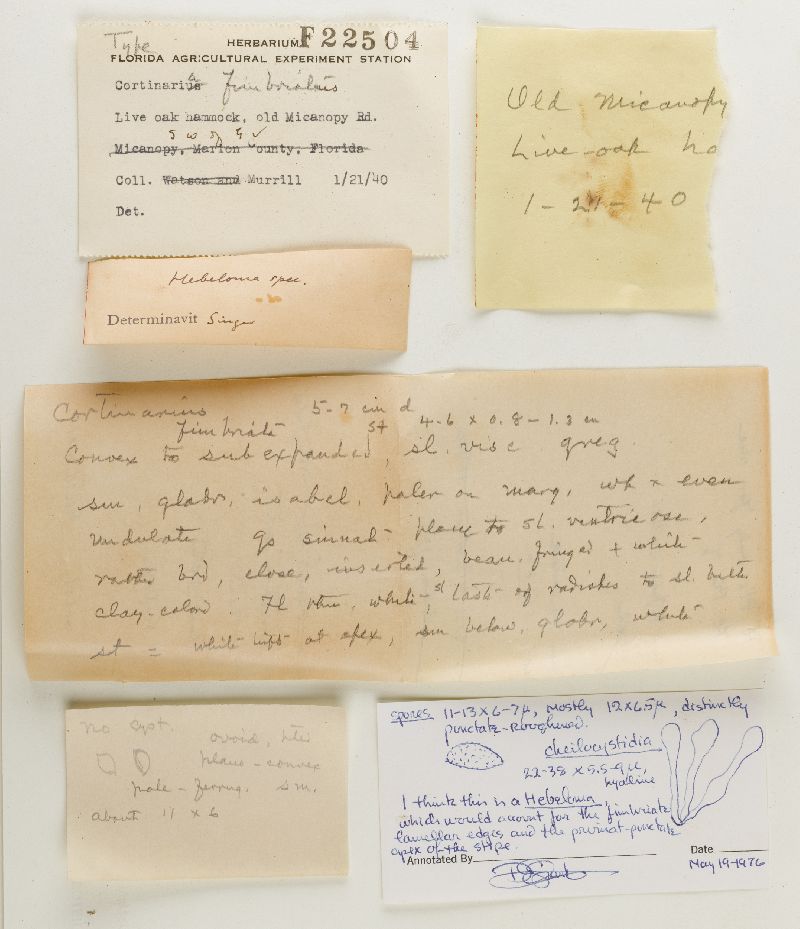 Type
HERBARIUM F22504
FLORIDA AGRICULTURAL EXPERIMENT STATION
Cortinarius
Live oak hammock, old Micanopy Rd.
Micanopy, Marion County, Florida
Coll. Watson and Murrill 1/21/40
Det.
Old Micanopy
Live-oak ha
1-21-40
Hebeloma spec.
Determinavit Singer
Cortinarius 5-7 cm d
fimbriat St 4-6 x 0.8-1.3 cm
Convex to subexpanded, sl. visc greg.
sm, glabr, isabel, paler on marg, wh & even
undulate gs sinuat plane to sl. ventricose,
rather brd, close, inserted, beau. fringed & white
clay-colord. Fl thn, white, sl taste of radishes to sl. bitter
st = white at apex, sm below, glabr, white
no cyst. ovoid,
plano-convex
pale-ferrug. sm.
about 11 x 6
spores 11-13 x 6-7µ, mostly 12 x 6.5µ, distinctly
punctate-roughened.
cheilocystidia
22-38 x 5.5-9µ,
hyaline
I think this is a Hebeloma,
which would account for the fimbriate
lamellar edges and the pruinat-punctate
apex of the stipe.
Annotated By Date
May 19-1976